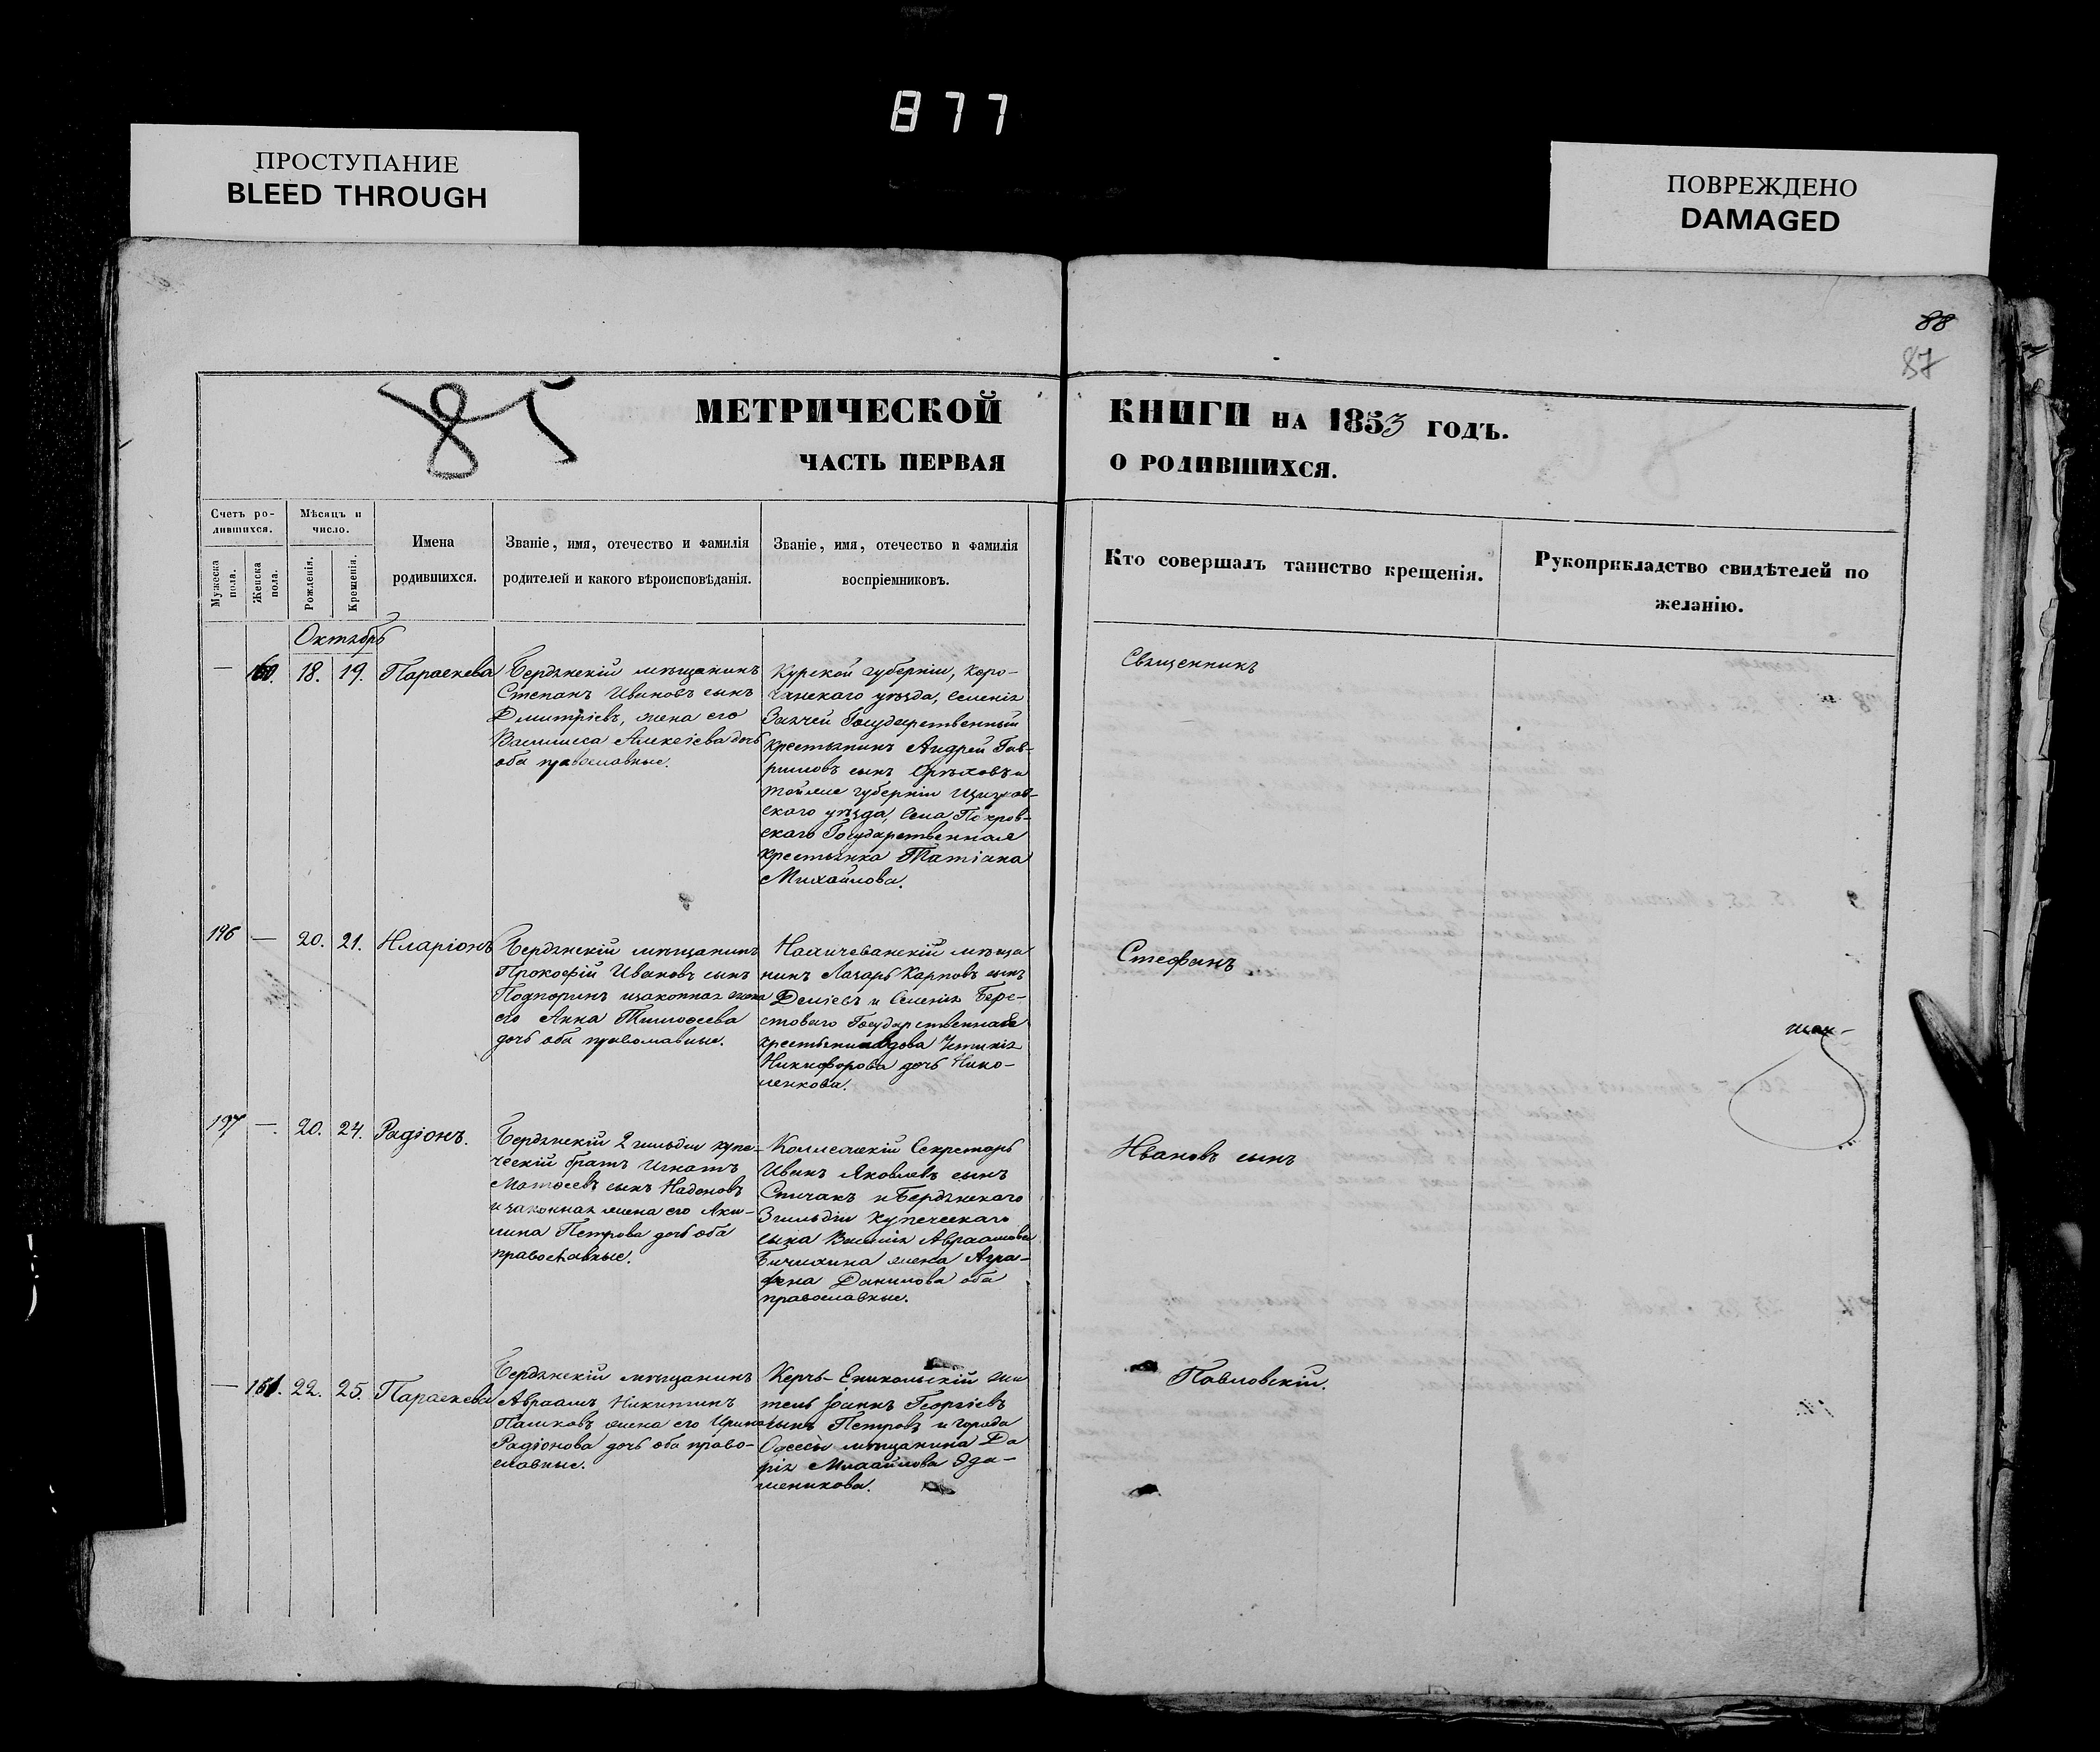 877
ПРОСТУПАНИЕ
BLEED THROUGH
ПОВРЕЖДЕНО
DAMAGED
88
87
85
МЕТРИЧЕСКОЙ КНИГИ НА 1853 ГОДЪ.
ЧАСТЬ ПЕРВАЯ О РОДИВШИХСЯ.
Счетъ ро-
дившихся.
Мужеска пола.
Женска пола.
Мѣсяцъ и
число.
Рожденія.
Крещенія.
Имена
родившихся.
Званіе, имя, отечество и фамилія
родителей и какого вѣроисповѣданія.
Званіе, имя, отечество и фамилія
воспріемниковъ.
Кто совершалъ таинство крещенія.
Рукоприкладство свидѣтелей по
желанію.
Октябрь
— 160. 18. 19. Параскева
Бердянскій мѣщанинъ
Степанъ Ивановъ сынъ
Дмитріевъ, жена его
Василиса Алексіева дочь
оба православные.
Курской губерніи, Коро-
чанскаго уѣзда, Селенія
Государственный
крестьянинъ Андрей Гав-
риловъ сынъ Орѣховъ и
тойже губерніи Щигров-
скаго уѣзда, Села Покров-
скаго Государственная
крестьянка Татіана
Михайлова.
Священникъ
196 — 20. 21. Иларіонъ
Бердянскій мѣщанинъ
Прокофій Ивановъ сынъ
Подпоринъ изаконная жена
его Анна Тимоѳеева
дочь оба православные.
Нахичеванскій мѣща
нинъ Лазарь Карповъ сынъ
и Селенія Бере-
стоваго Государственная
вдова Устинія
Никифорова дочь Нико-
ленкова.
Стефанъ
197 —. 20. 24. Радіонъ.
Бердянскій 2 гильдіи купе-
ческій братъ Игнатъ
Матѳеевъ сынъ
изаконная жена его Аки-
лина Петрова дочь оба
православные.
Коллежскій Секретарь
Иванъ Яковлевъ сынъ
Спичакъ и Бердянскаго
3 гильдіи купеческаго
сына Василія Авраамова
Бичихина жена Агра-
фена Данилова оба
православные.
Ивановъ сынъ
— 161. 22. 25. Параскева
Бердянскій мѣщанинъ
Авраамъ Никитинъ
Пашковъ жена его Ирина
Радіонова дочь оба право-
славные.
Керчь-Еникольскій жи
тель Іоаннъ Георгіевъ
сынъ Петровъ и города
Одессы мѣщанина Да
рія Михайлова
Павловскій.